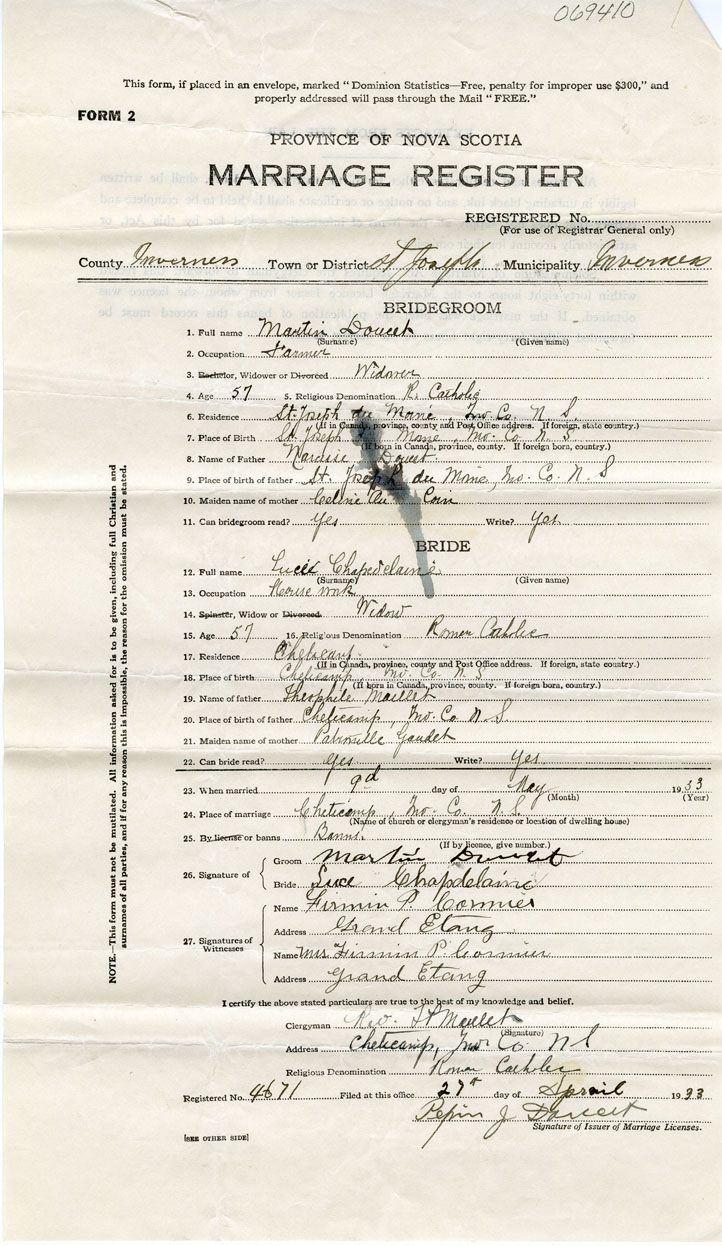 069410
This form, if placed in an envelope, marked “Dominion Statistics—Free, penalty for improper use $300,” and
properly addressed will pass through the Mail “FREE.”
FORM 2
PROVINCE OF NOVA SCOTIA
MARRIAGE REGISTER
REGISTERED No.
(For use of Registrar General only)
County Inverness Town or District St Joseph Municipality Inverness
BRIDEGROOM
1. Full name Martin Doucet
(Surname) (Given name)
2. Occupation Farmer
3. Bachelor, Widower or Divorced Widower
4. Age 57 5. Religious Denomination R. Catholic
6. Residence St. Joseph du Moine, Inv. Co. N S.
(If in Canada, province, county and Post Office address. If foreign, state country.)
7. Place of Birth St. Joseph Moine, Inv. Co. N S
(If born in Canada, province, county. If foreign born, country.)
8. Name of Father Doucet
9. Place of birth of father St. Joseph du Moine, Inv. Co. N. S
10. Maiden name of mother Celine Au Coin
11. Can bridegroom read? Yes Write? Yes
BRIDE
12. Full name Luce Chapdelaine
(Surname) (Given name)
13. Occupation House work
14. Spinster, Widow or Divorced Widow
15. Age 57 16. Religious Denomination Roman Catholic
17. Residence Cheticamp
(If in Canada, province, county and Post Office address. If foreign, state country.)
18. Place of birth Cheticamp, Inv. Co. N. S
(If born in Canada, province, county. If foreign born, country.)
19. Name of father Theophile Maillet
20. Place of birth of father Cheticamp, Inv. Co N. S.
21. Maiden name of mother Gaudet
22. Can bride read? Yes Write? Yes
23. When married 9d day of May 1933
(Month) (Year)
24. Place of marriage Cheticamp, Inv. Co. N. S.
(Name of church or clergyman's residence or location of dwelling house)
25. By license or banns Banns.
(If by licence, give number.)
26. Signature of
Groom Martin Doucet
Bride Luce Chapdelaine
27. Signatures of Witnesses
Name Firmin P. Cormier
Address Grand Etang
Name Mrs. Firmin P. Cormier
Address Grand Etang
I certify the above stated particulars are true to the best of my knowledge and belief.
Clergyman Rev. Maillet
(Signature)
Address Cheticamp, Inv. Co. N S
Religious Denomination Roman Catholic
Registered No. 4671 Filed at this office 27 day of April 1933
Pepin J Doucet
Signature of Issuer of Marriage Licenses.
[SEE OTHER SIDE]
NOTE.—This form must not be mutilated. All information asked for is to be given, including full Christian and
surnames of all parties, and if for any reason this is impossible, the reason for the omission must be stated.